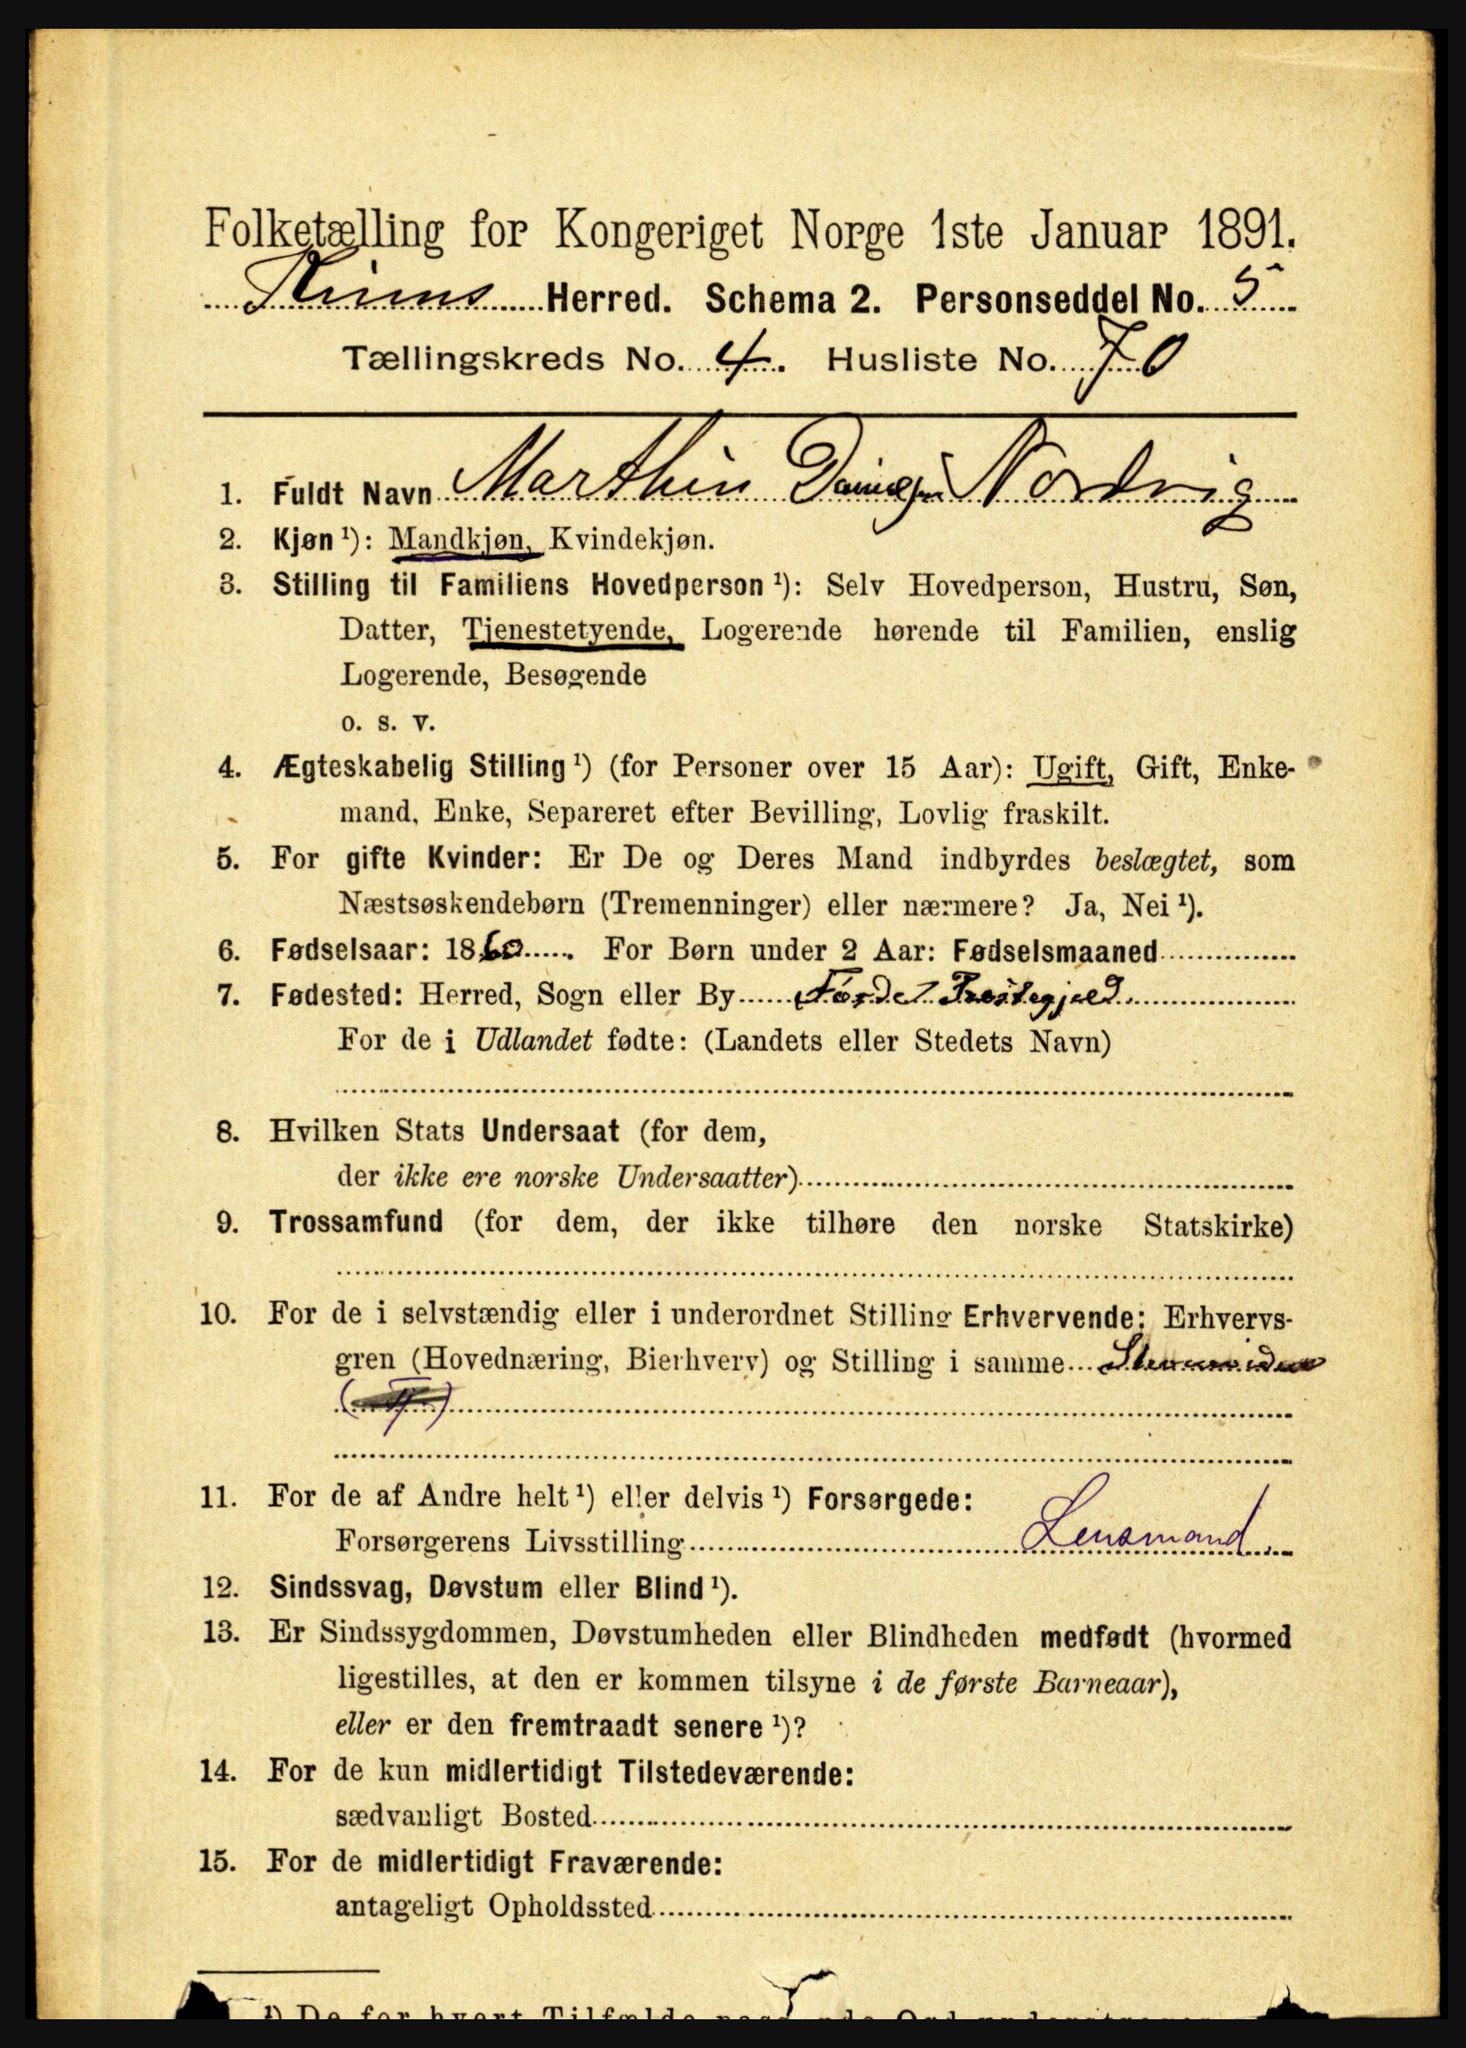 Folketælling for Kongeriget Norge 1ste Januar 1891.
Kinns Herred. Schema 2. Personseddel No. 5
Tællingskreds No. 4. Husliste No. 70
1. Fuldt Navn Marthin Nordvig
2. Kjøn ¹): Mandkjøn, Kvindekjøn.
3. Stilling til Familiens Hovedperson ¹): Selv Hovedperson, Hustru, Søn,
Datter, Tjenestetyende, Logerende hørende til Familien, enslig
Logerende, Besøgende
o. s. v.
4. Ægteskabelig Stilling ¹) (for Personer over 15 Aar): Ugift, Gift, Enke-
mand, Enke, Separeret efter Bevilling, Lovlig fraskilt.
5. For gifte Kvinder: Er De og Deres Mand indbyrdes beslægtet, som
Næstsøskendebørn (Tremenninger) eller nærmere? Ja, Nei ¹).
6. Fødselsaar: 1860. For Børn under 2 Aar: Fødselsmaaned
7. Fødested: Herred, Sogn eller By Førde Præstegjeld
For de i Udlandet fødte: (Landets eller Stedets Navn)
8. Hvilken Stats Undersaat (for dem,
der ikke ere norske Undersaatter)
9. Trossamfund (for dem, der ikke tilhøre den norske Statskirke)
10. For de i selvstændig eller i underordnet Stilling Erhvervende: Erhvervs-
gren (Hovednæring, Bierhverv) og Stilling i samme
11. For de af Andre helt ¹) eller delvis ¹) Forsørgede:
Forsørgerens Livsstilling Lensmand.
12. Sindssvag, Døvstum eller Blind ¹).
13. Er Sindssygdommen, Døvstumheden eller Blindheden medfødt (hvormed
ligestilles, at den er kommen tilsyne i de første Barneaar),
eller er den fremtraadt senere ¹)?
14. For de kun midlertidigt Tilstedeværende:
sædvanligt Bosted
15. For de midlertidigt Fraværende:
antageligt Opholdssted
¹) De for hvert Tilfælde